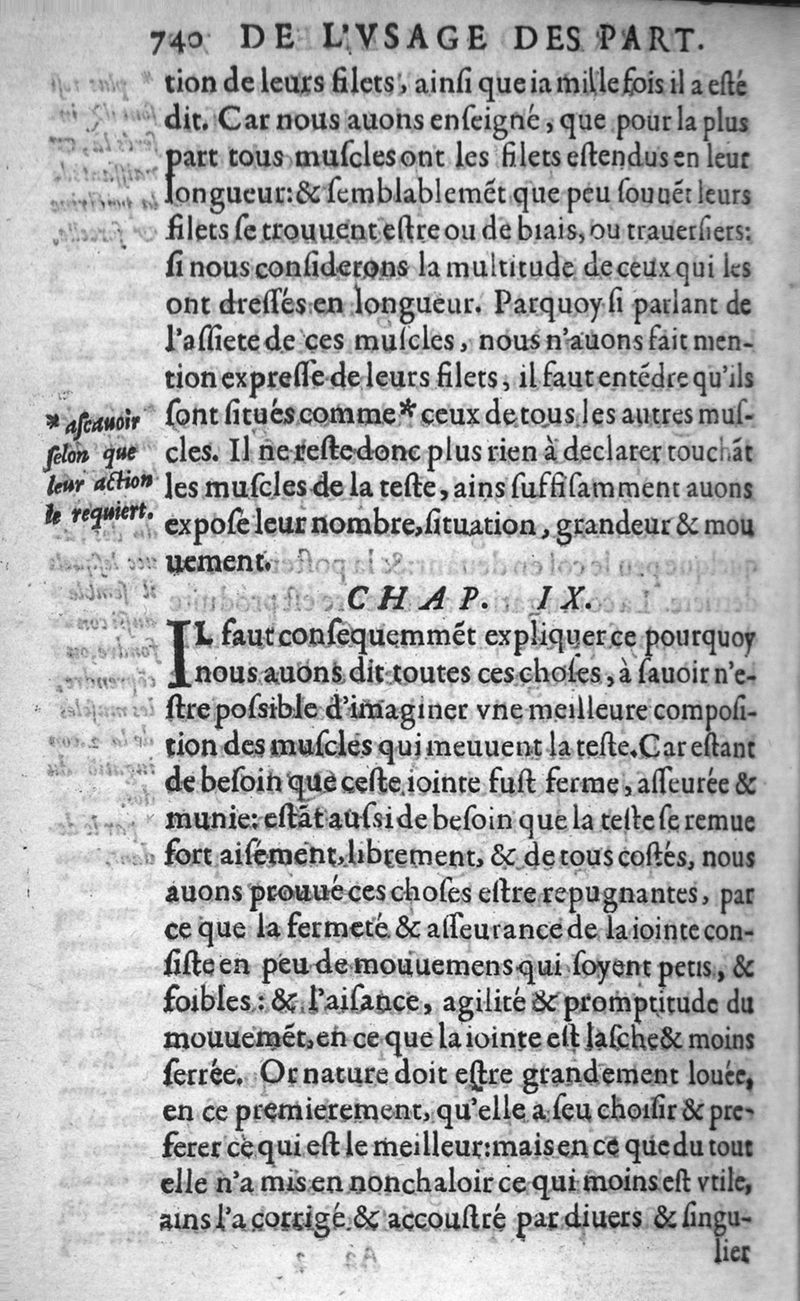 740 DE L'VSAGE DES PART.
tion de leurs filets, ainſi que ia mille fois il a eſté
dit. Car nous auons enſeigné, que pour la plus
part tous muſcles ont les filets eſtendus en leur
longueur: & ſemblablemẽt que peu ſouuẽt leurs
filets ſe trouuent eſtre ou de biais, ou trauerſiers:
ſi nous conſiderons la multitude de ceux qui les
ont dreſſés en longueur. Parquoy ſi parlant de
l'aſſiete de ces muſcles, nous n'auons fait men-
tion expreſſe de leurs filets, il faut entẽdre qu'ils
ſont ſitués comme * ceux de tous les autres muſ-
cles. Il ne reſte donc plus rien à declarer touchãt
les muſcles de la teſte, ains ſuffiſamment auons
expoſé leur nombre, ſituation, grandeur & mou
uement.
* aſcauoir
ſelon que
leur action
le requiert.
CHAP. IX.
IL faut conſequemmẽt expliquer ce pourquoy
nous auons dit toutes ces choſes, à ſauoir n'e-
ſtre poſsible d'imaginer vne meilleure compoſi-
tion des muſcles qui meuuent la teſte. Car eſtant
de beſoin que ceſte iointe fuſt ferme, aſſeurée &
munie: eſtãt auſsi de beſoin que la teſte ſe remue
fort aiſement, librement, & de tous coſtés, nous
auons prouué ces choſes eſtre repugnantes, par
ce que la fermeté & aſſeurance de la iointe con-
ſiſte en peu de mouuemens qui ſoyent petis, &
foibles: & l'aiſance, agilité & promptitude du
mouuemẽt, en ce que la iointe eſt laſche & moins
ſerrée. Or nature doit eſtre grandement louée,
en ce premierement, qu'elle a ſeu choiſir & pre-
ferer ce qui eſt le meilleur: mais en ce que du tout
elle n'a mis en nonchaloir ce qui moins eſt vtile,
ains l'a corrigé & accouſtré par diuers & ſingu-
lier